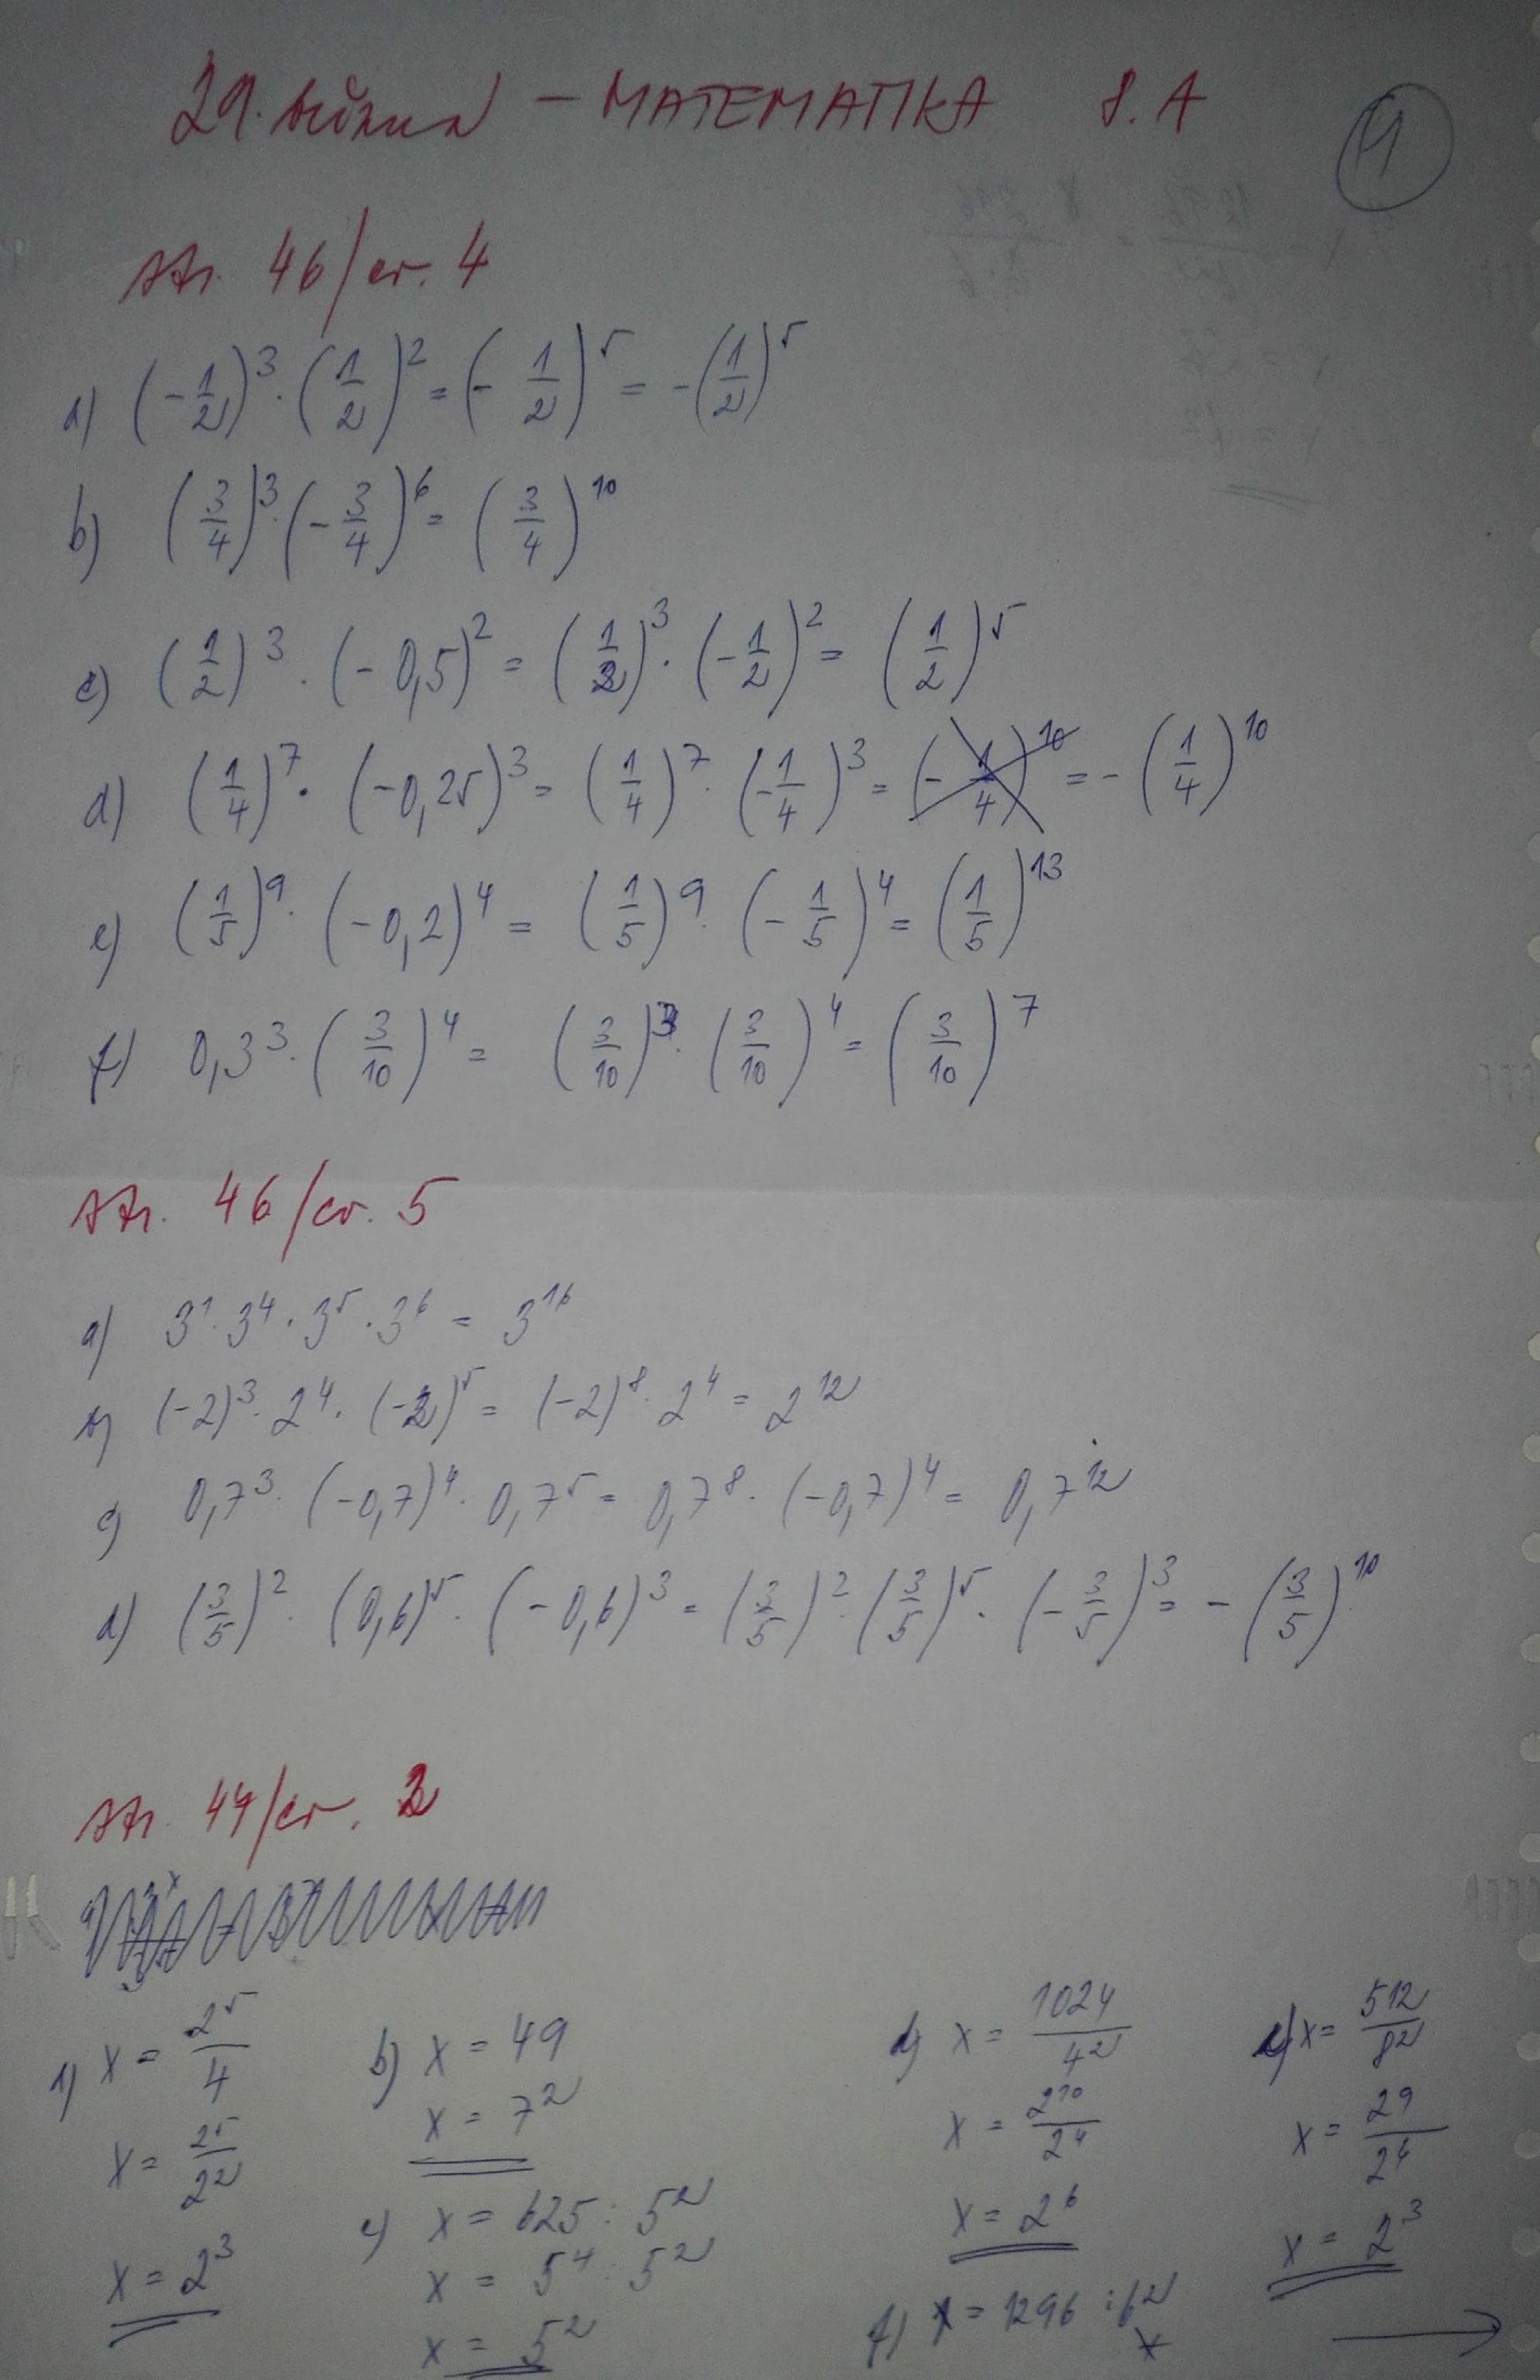 29. týden – MATEMATIKA 8.A
1
str. 46/cv. 4
a) (-1/2)³ · (1/2)² = (- 1/2)⁵ = -(1/2)⁵
b) (3/4)³ · (-3/4)⁶ = (3/4)¹⁰
c) (1/2)³ · (-0,5)² = (1/2)³ · (-1/2)² = (1/2)⁵
d) (1/4)⁷ · (-0,25)³ = (1/4)⁷ · (-1/4)³ = (-1/4)¹⁰ = -(1/4)¹⁰
e) (1/5)⁹ · (-0,2)⁴ = (1/5)⁹ · (-1/5)⁴ = (1/5)¹³
f) 0,3³ · (3/10)⁴ = (3/10)³ · (3/10)⁴ = (3/10)⁷
str. 46/cv. 5
a) 3¹ · 3⁴ · 3⁵ · 3⁶ = 3¹⁶
b) (-2)³ · 2⁴ · (-2)⁵ = (-2)⁸ · 2⁴ = 2¹²
c) 0,7³ · (-0,7)⁴ · 0,7⁵ = 0,7⁸ · (-0,7)⁴ = 0,7¹²
d) (3/5)² · (0,6)⁵ · (-0,6)³ = (3/5)² · (3/5)⁵ · (-3/5)³ = -(3/5)¹⁰
str. 47/cv. 2
a) x = 2⁵/4
x = 2⁵/2²
x = 2³
b) x = 49
x = 7²
c) x = 625 : 5²
x = 5⁴ : 5²
x = 5²
d) x = 1024/4²
x = 2¹⁰/2⁴
x = 2⁶
e) x = 512/8²
x = 2⁹/2⁶
x = 2³
f) x = 1296 : 6²